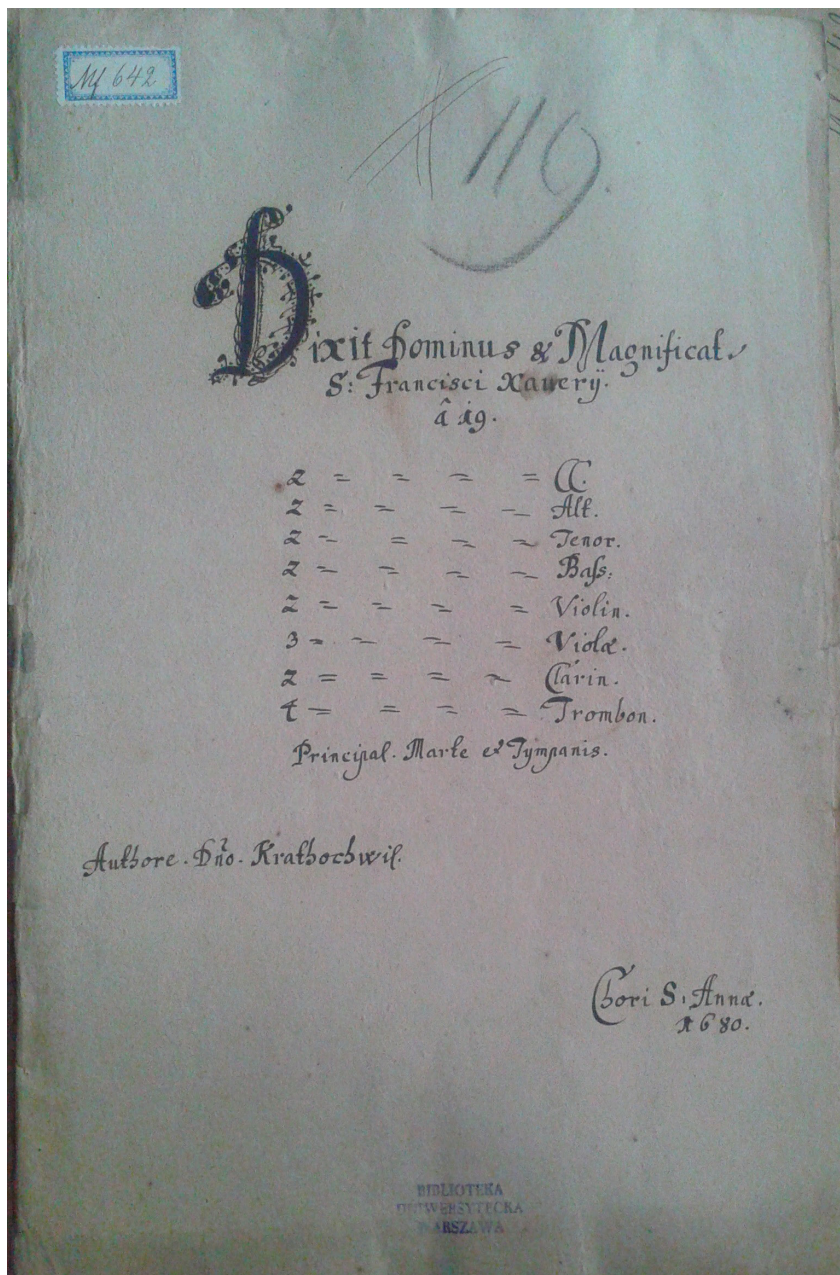 Mf 642
119.
Dixit Dominus & Magnificat.
S: Francisci Xaverÿ.
â 19.
2 = = = = CC.
2 = = = = Alt.
2 = = = = Tenor.
2 = = = = Baſs:
2 = = = = Violin.
3 = = = = Violæ.
2 = = = = Clarin.
4 = = = = Trombon.
Principal. Marte et Tympanis.
Authore. Dño. Krathochwil.
Chori S: Annæ.
1680.
BIBLIOTEKA
UNIWERSYTECKA
WARSZAWA